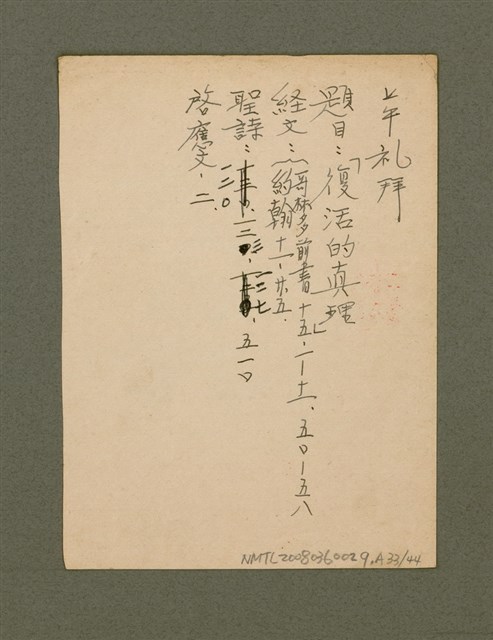 上午礼拜
題目：「復活的真理」
経文：（哥林多前書十五、一－十一、五〇－五八
約翰十一・廿五．
聖詩：一二〇、一三 、一二七、五一〇
啓應文、二．
NMTL20080360029.A33/44